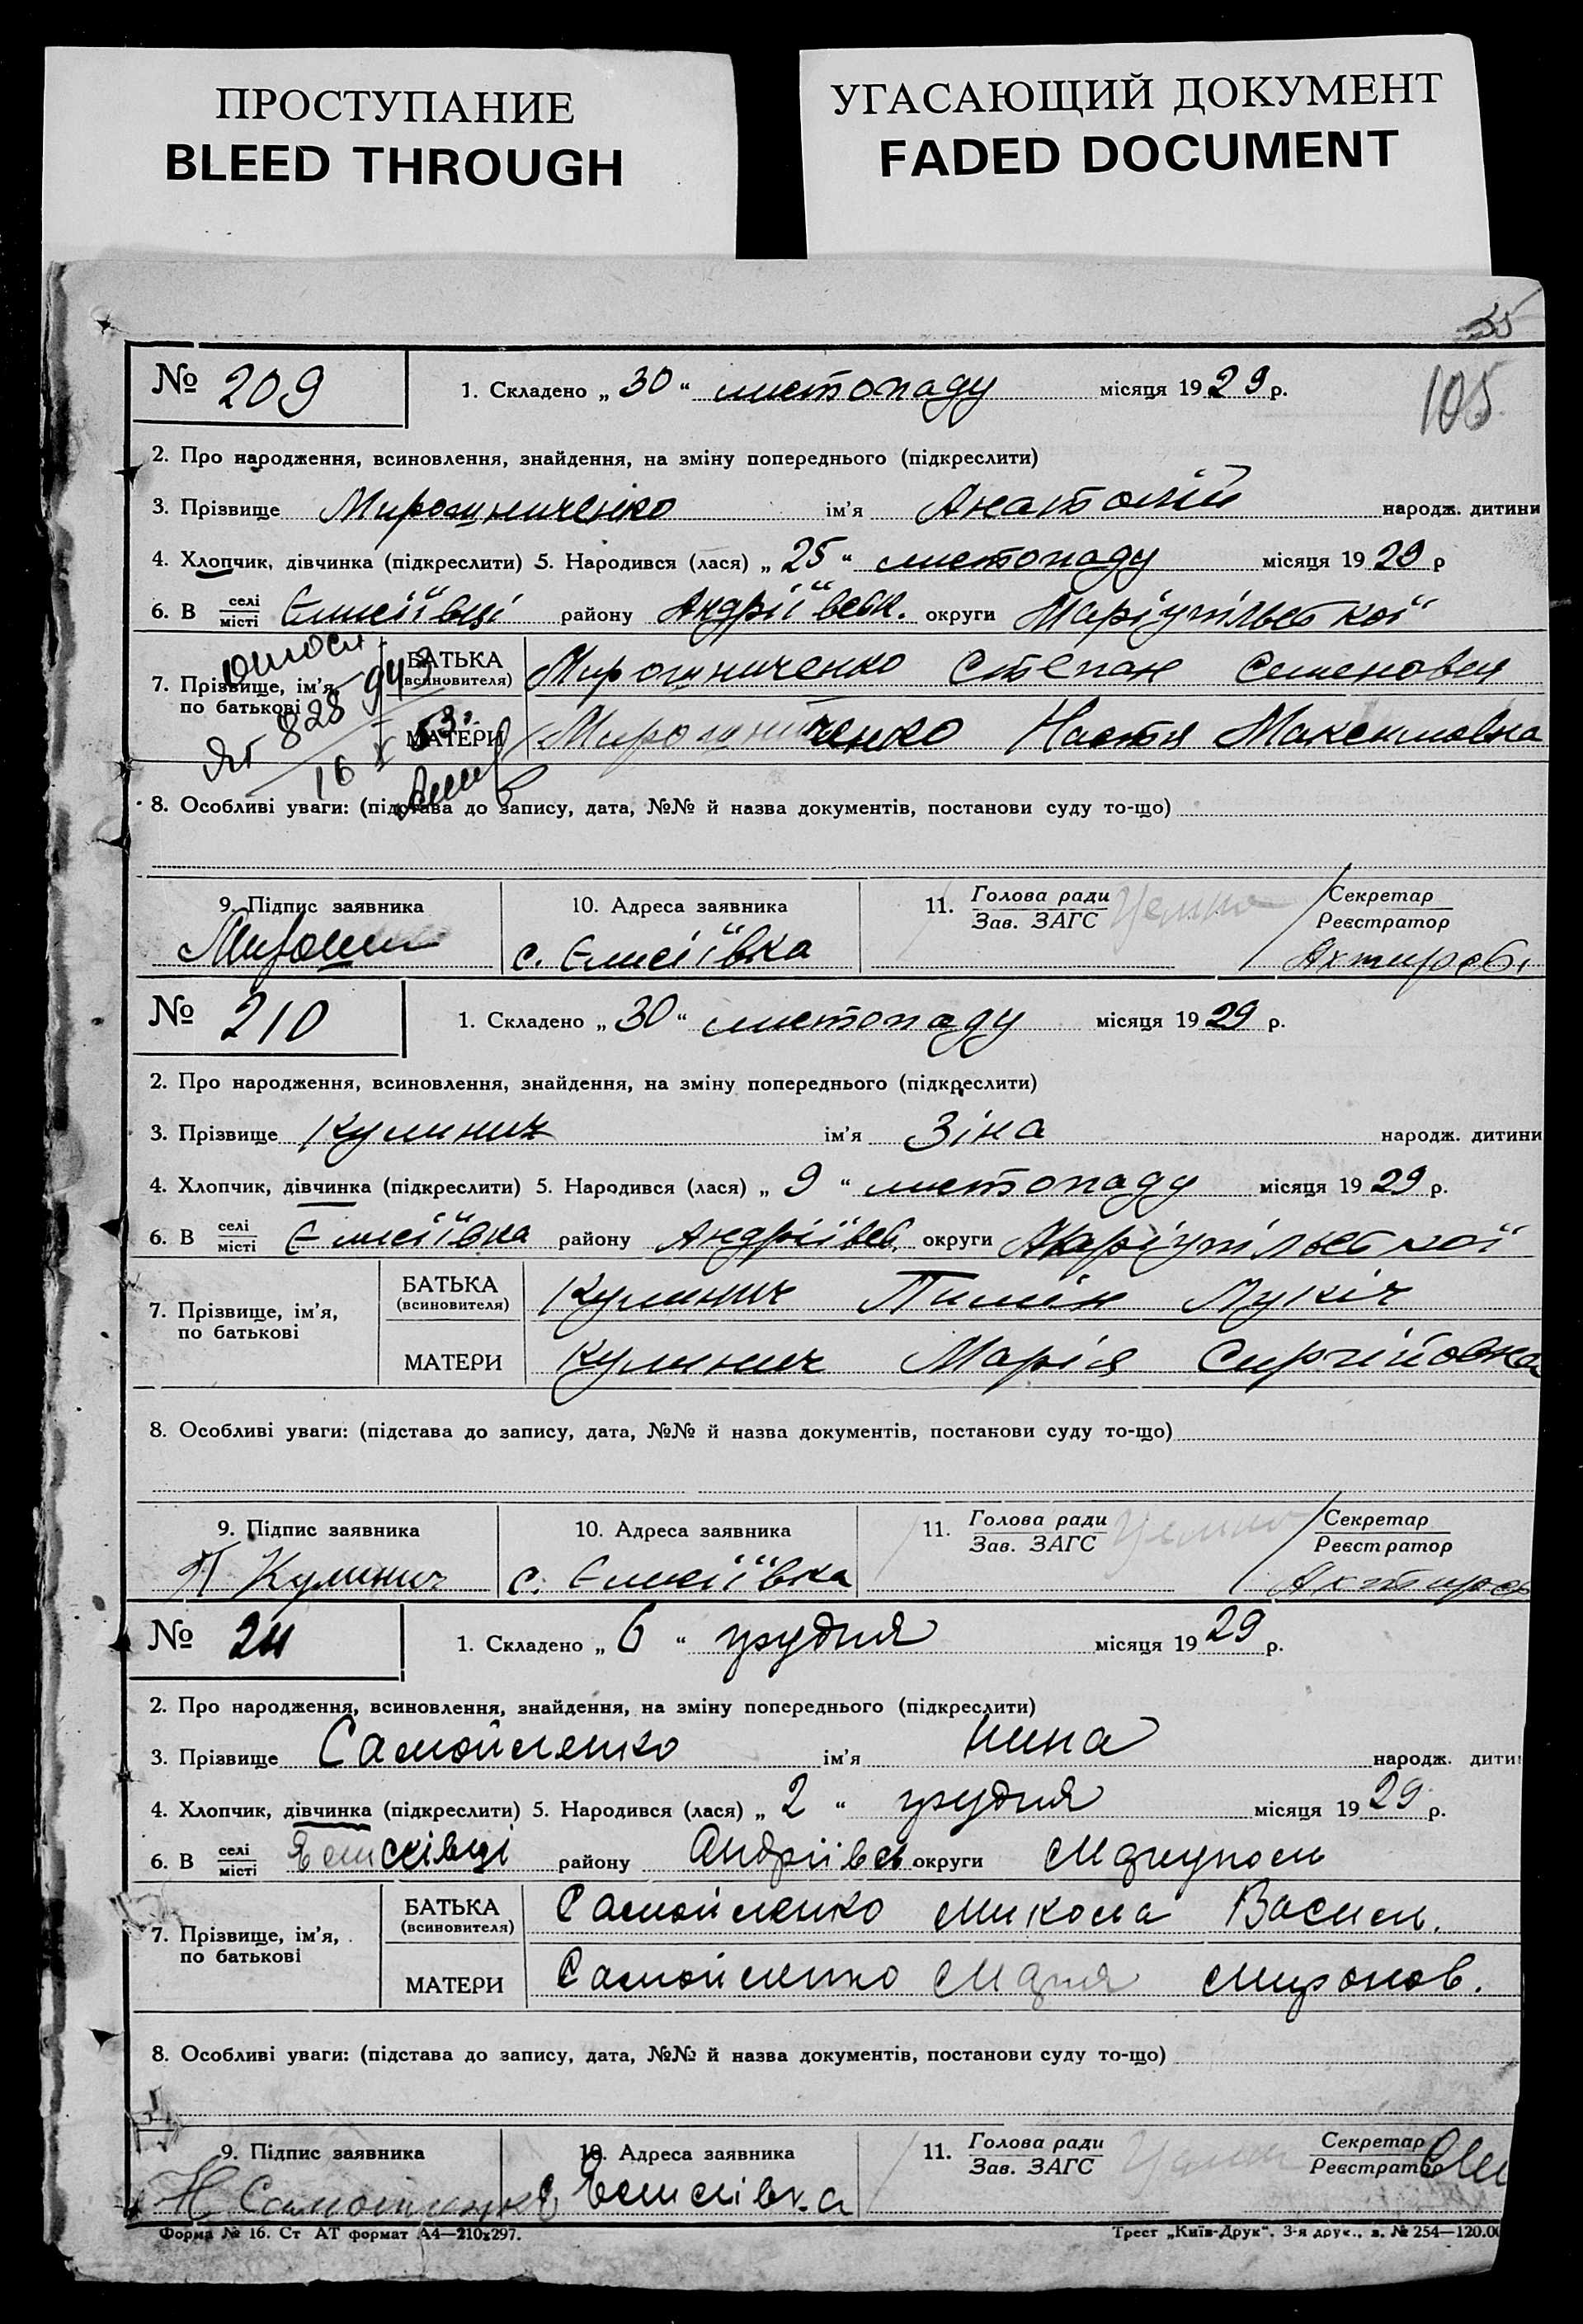 ПРОСТУПАНИЕ
BLEED THROUGH
УГАСАЮЩИЙ ДОКУМЕНТ
FADED DOCUMENT
105
№ 209
1. Складено „ 30 “ листопаду місяця 1929 р.
2. Про народження, всиновлення, знайдення, на зміну попереднього (підкреслити)
3. Прізвище Мирошниченко ім'я Анатолій народж. дитини
4. Хлопчик, дівчинка (підкреслити) 5. Народився (лася) „ 25 “ листопаду місяця 1929 р
6. В селі місті Єлисіївці району Андріївськ. округи Маріупільської
7. Прізвище, ім'я, по батькові
БАТЬКА (всиновителя) Мирошниченко Степан Семенович
МАТЕРИ Мирошниченко Настя Максимовна
828 943
16 X 53
8. Особливі уваги: (підстава до запису, дата, №№ й назва документів, постанови суду то-що)
9. Підпис заявника Мирошн
10. Адреса заявника с. Єлисіївка
11. Голова ради Зав. ЗАГС
Секретар Реєстратор
№ 210
1. Складено „ 30 “ листопаду місяця 1929 р.
2. Про народження, всиновлення, знайдення, на зміну попереднього (підкреслити)
3. Прізвище Кулинич ім'я Зіна народж. дитини
4. Хлопчик, дівчинка (підкреслити) 5. Народився (лася) „ 9 “ листопаду місяця 1929 р.
6. В селі місті Єлисіївка району Андріївсь. округи Маріупільської
7. Прізвище, ім'я, по батькові
БАТЬКА (всиновителя) Кулинич Пимін Лукіч
МАТЕРИ Кулинич Марія Сиргійовна
8. Особливі уваги: (підстава до запису, дата, №№ й назва документів, постанови суду то-що)
9. Підпис заявника П Кулинич
10. Адреса заявника с. Єлисіївка
11. Голова ради Зав. ЗАГС
Секретар Реєстратор
№ 211
1. Складено „ 6 “ грудня місяця 1929 р.
2. Про народження, всиновлення, знайдення, на зміну попереднього (підкреслити)
3. Прізвище Самойленко ім'я Нина народж. дити
4. Хлопчик, дівчинка (підкреслити) 5. Народився (лася) „ 2 “ грудня місяця 1929 р.
6. В селі місті району Андріївсь округи Маріупол
7. Прізвище, ім'я, по батькові
БАТЬКА (всиновителя) Самойленко Микола Васил.
МАТЕРИ Самойленко Марія Миронов.
8. Особливі уваги: (підстава до запису, дата, №№ й назва документів, постанови суду то-що)
9. Підпис заявника Н. Самойленко
10. Адреса заявника с Елисиівка
11. Голова ради Зав. ЗАГС
Секретар Реєстратор
Форма № 16. Ст АТ формат А4—210х297.
Трест „Київ-Друк“. 3-я друк., з. № 254—120.00